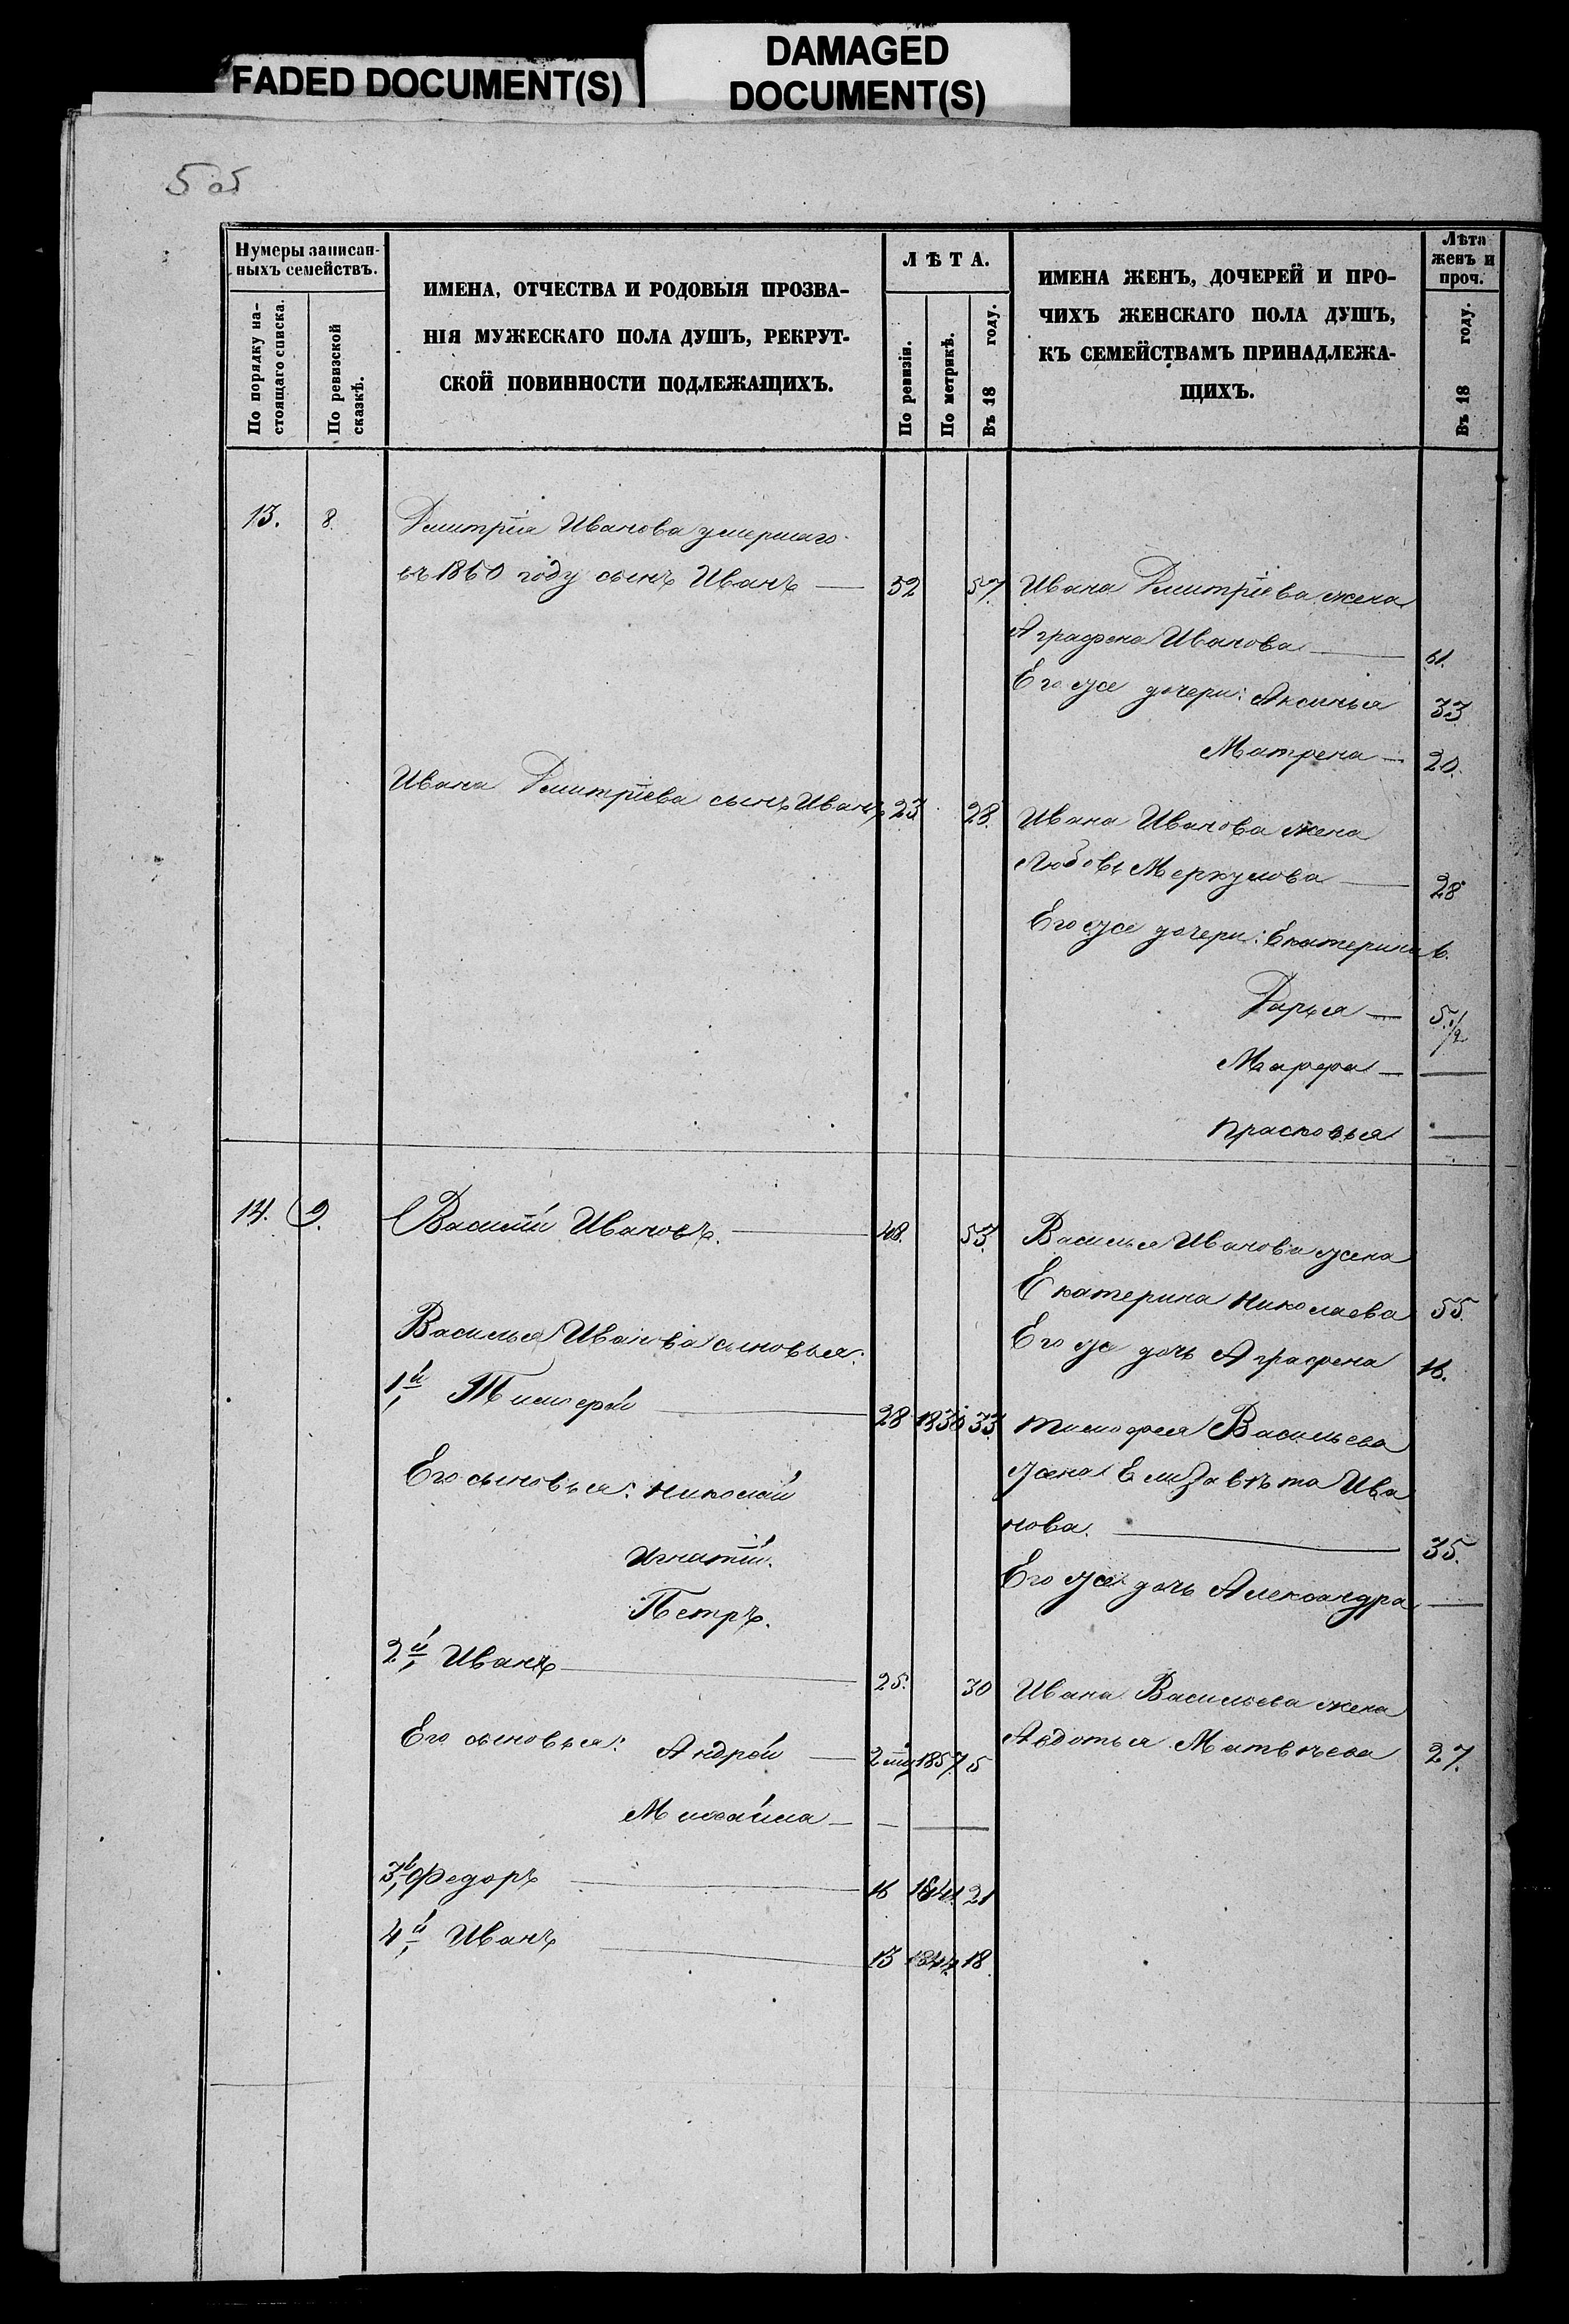 FADED DOCUMENT(S)
DAMAGED
DOCUMENT(S)
5 об
Нумеры записан-
ныхъ семействъ.
По порядку на-
стоящаго списка.
По ревизской
сказкѣ.
ИМЕНА, ОТЧЕСТВА И РОДОВЫЯ ПРОЗВА-
НІЯ МУЖЕСКАГО ПОЛА ДУШЪ, РЕКРУТ-
СКОЙ ПОВИННОСТИ ПОДЛЕЖАЩИХЪ.
ЛѢТА.
По ревизіи.
По метрикѣ.
Въ 18 году.
ИМЕНА ЖЕНЪ, ДОЧЕРЕЙ И ПРО-
ЧИХЪ ЖЕНСКАГО ПОЛА ДУШЪ,
КЪ СЕМЕЙСТВАМЪ ПРИНАДЛЕЖА-
ЩИХЪ.
Лѣта
женъ и
проч.
Въ 18 году.
13. 8. Дмитрія Иванова умершаго
въ 1860 году сынъ Иванъ — 52 57. Ивана Дмитріева жена
Аграфена Иванова — 61.
Его же дочери: Аксинья 33
Матрена — 20.
Ивана Дмитріева сынъ Иванъ 23 28. Ивана Иванова жена
Любовь Меркулова — 28
Его же дочери: Екатерина 6.
Дарья — 5.1/2
Марфа — —
Прасковья —
14. 9. Василій Ивановъ. — 48. 53. Василья Иванова жена
Екатерина Николаева 55.
Василья Иванова сыновья:
Его же дочь Аграфена 16.
1й, Тимофей — 28 1830 33. Тимофея Васильева
Его сыновья: Николай
жена Елизавѣта Ива
нова. — 35.
Игнатій.
Его же дочь Александра —
Петръ.
2й, Иванъ — 25. 30 Ивана Васильева жена
Его сыновья: Андрей — 2 мц 1857. 5 Авдотья Матвѣева 27.
Михаила — — —
3й, Федоръ — 16 1841. 21
4й, Иванъ — 13 1844 18